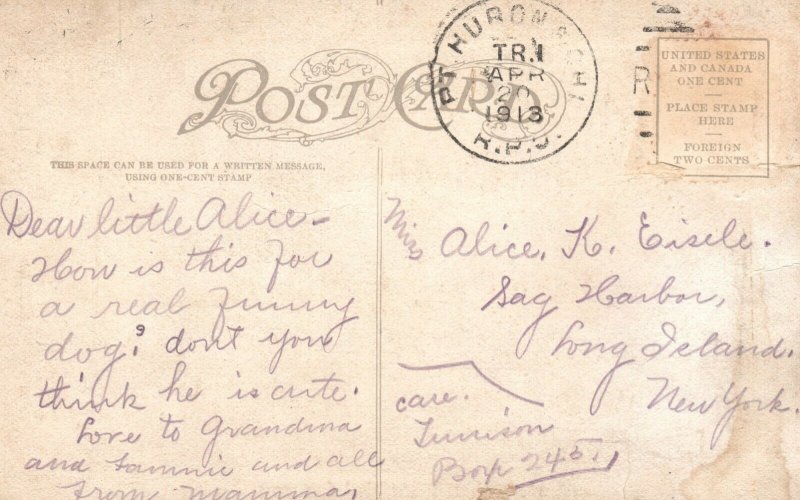 POST CARD
PT. HURON & CHI.
TR.1
APR
20
1913
R.P.O.
R
UNITED STATES
AND CANADA
ONE CENT
PLACE STAMP
HERE
FOREIGN
TWO CENTS
THIS SPACE CAN BE USED FOR A WRITTEN MESSAGE,
USING ONE-CENT STAMP
Dear little Alice -
How is this for
a real funny
dog? dont you
think he is cute.
Love to Grandma
and Fannie and all
From Mamma,
Miss Alice. K. Eisele.
Sag Harbor,
Long Island.
New York.
care.
Box 245,